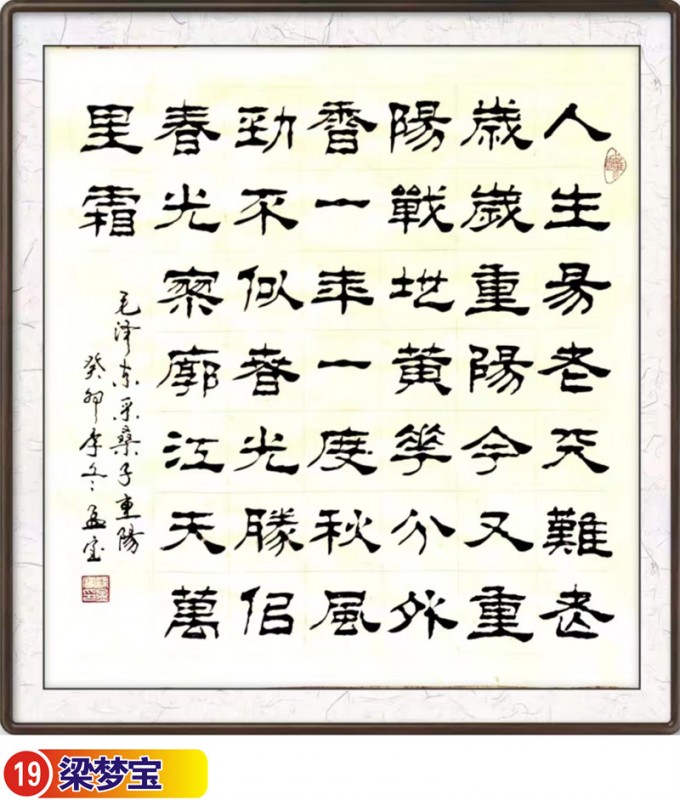 人生易老天難老
歳歲重陽今又重
陽戰地黃花分外
香一年一度秋風
勁不似春光勝佀
春光寥廓江天萬
里霜
毛泽东采桑子重陽
癸卯季冬孟宝
19 梁梦宝